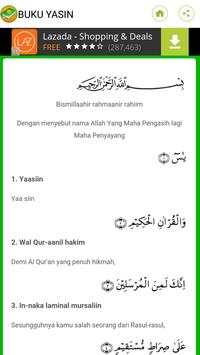 BUKU YASIN
Lazada - Shopping & Deals
FREE ★★★★★ (287,463)
بِسْمِ اللَّهِ الرَّحْمَٰنِ الرَّحِيمِ
Bismillaahir rahmaanir rahiim
Dengan menyebut nama Allah Yang Maha Pengasih lagi
Maha Penyayang
يسٓ ﴿١﴾
1. Yaasiin
Yaa siin
وَالْقُرْآنِ الْحَكِيمِ ﴿٢﴾
2. Wal Qur-aanil hakim
Demi Al Qur'an yang penuh hikmah,
إِنَّكَ لَمِنَ الْمُرْسَلِينَ ﴿٣﴾
3. In-naka laminal mursaliin
Sesungguhnya kamu salah seorang dari Rasul-rasul,
عَلَىٰ صِرَاطٍ مُسْتَقِيمٍ ﴿٤﴾